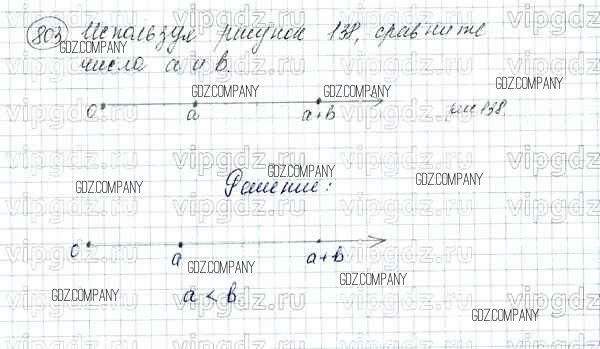 803 Используя рисунок 138, сравните
GDZ.COMPANY
числа a и b.
GDZ.COMPANY GDZ.COMPANY
0 a a+b рис 138.
GDZ.COMPANY GDZ.COMPANY
GDZ.COMPANY Решение: GDZ.COMPANY
0 a a+b
GDZ.COMPANY GDZ.COMPANY
GDZ.COMPANY a < b
GDZ.COMPANY
vipgdz.ru